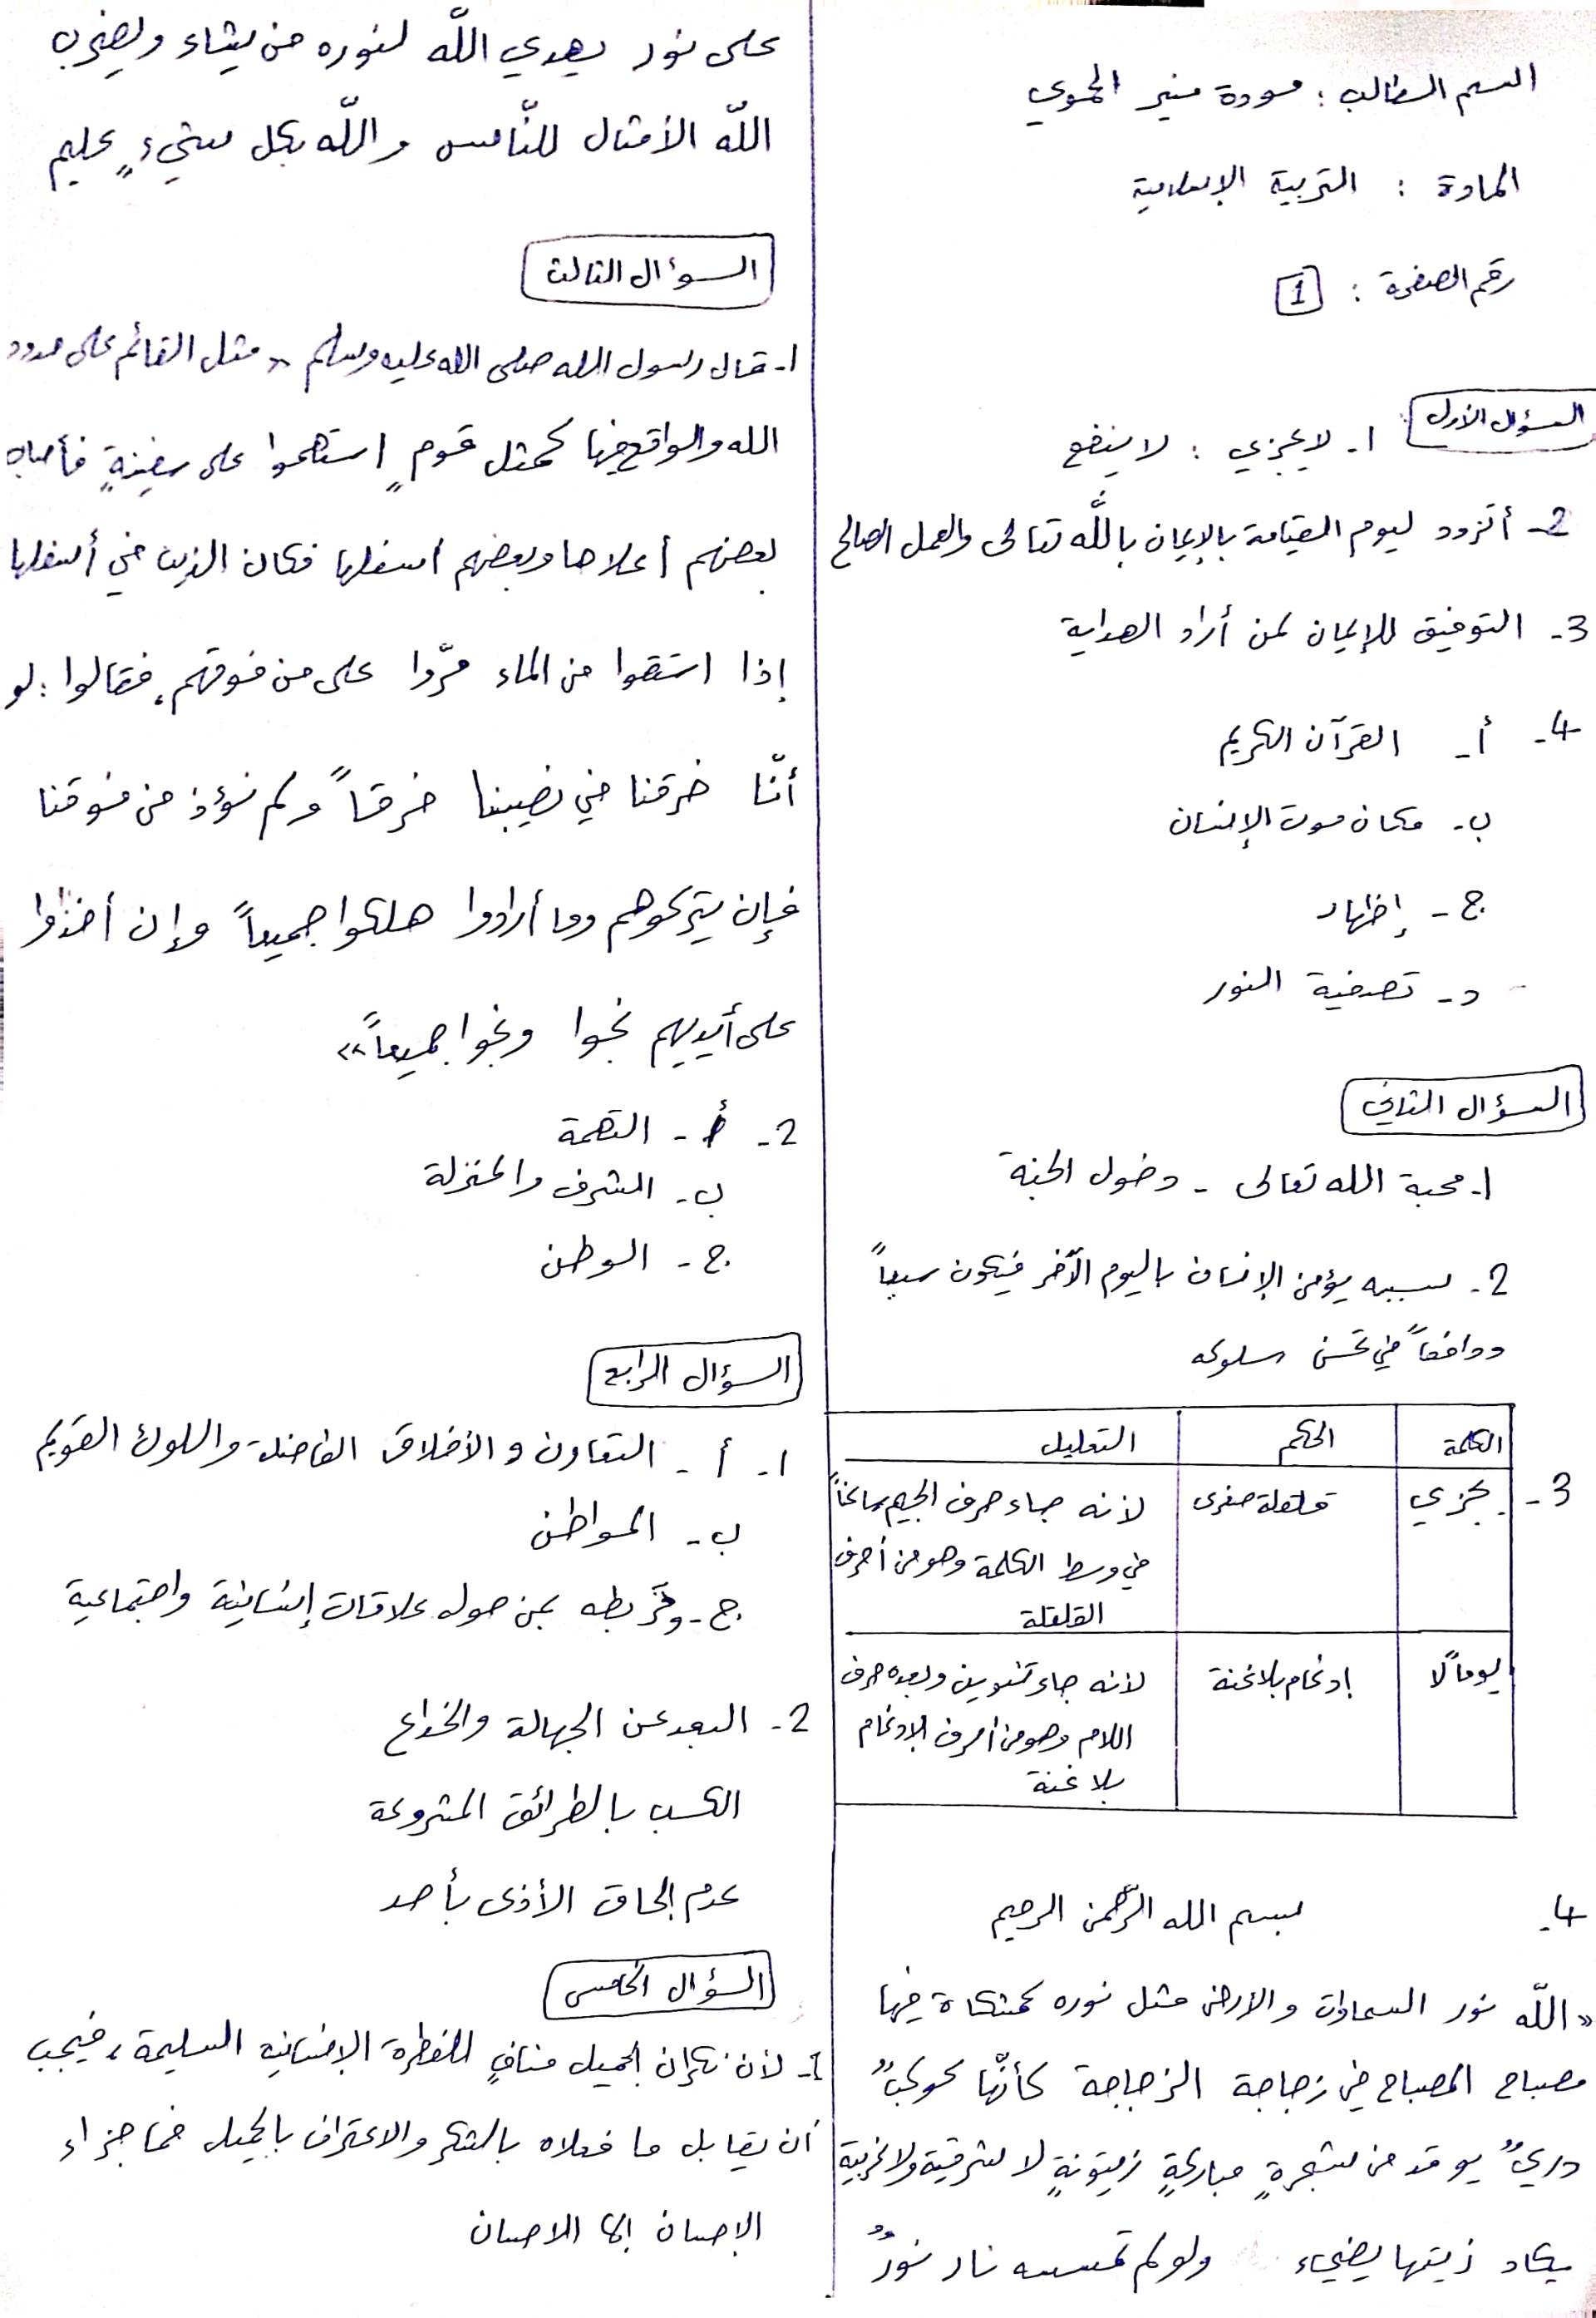 اسم الطالب : مودة منير الحموي
المادة : التربية الإسلامية
رقم الصفحة : 1
السؤال الأول
1- لا يجزي : لا ينفع
2- أتزود ليوم القيامة بالإيمان باللّه تعالى والعمل الصالح
3- التوفيق للإيمان لمن أراد الهداية
4- أ- القرآن الكريم
ب- مكان موت الإنسان
ج- إظهار
د- تصفية النور
السؤال الثاني
1- محبة الله تعالى - دخول الجنة
2- بسببه يؤمن الإنسان باليوم الآخر فيكون سبباً
ودافعاً في تحسن سلوكه
3-
الكلمة الحكم التعليل
يجزي قلقلة صغرى لأنه جاء حرف الجيم ساكناً
في وسط الكلمة وهو من أحرف
القلقلة
يوماً لا إدغام بلا غنة لأنه جاء تنوين وبعده حرف
اللام وهو من أحرف الإدغام
بلا غنة
4- بسم الله الرّحمن الرحيم
« اللّه نور السماوات والارض مثل نوره كمشكاة فيها
مصباح المصباح في زجاجة الزجاجة كأنّها كوكبٌ
دريٌ يوقد من شجرةٍ مباركةٍ زيتونةٍ لا شرقية ولا غربية
يكاد زيتها يضيء ولو لم تمسسه نار نورٌ
على نور يهدي اللّه لنوره من يشاء ويضرب
اللّه الأمثال للنّاس واللّه بكل شيءٍ عليم
السؤال الثالث
1- قال رسول الله صلى الله عليه وسلم « مثل القائم على حدود
الله والواقع فيها كمثل قومٍ استهموا على سفينةٍ فأصاب
بعضهم أعلاها وبعضهم أسفلها فكان الذين في أسفلها
إذا استقوا من الماء مرّوا على من فوقهم، فقالوا : لو
أنّا خرقنا في نصيبنا خرقاً ولم نؤذ من فوقنا
فإن يتركوهم وما أرادوا هلكوا جميعاً وإن أخذوا
على أيديهم نجوا ونجوا جميعاً»
2- أ- التهمة
ب- الشرف والمنزلة
ج- الوطن
السؤال الرابع
1- أ- التعاون و الأخلاق الفاضلة والسلوك القويم
ب- المواطن
ج- وتربطه بمن حوله علاقات إنسانية واجتماعية
2- البعد عن الجهالة والخداع
الكسب بالطرائق المشروعة
عدم إلحاق الأذى بأحد
السؤال الخامس
1- لأن نكران الجميل منافٍ للفطرة الإنسانية السليمة، فيجب
أن يقابل ما فعلاه بالشكر والاعتراف بالجميل فما جزاء
الإحسان إلا الاحسان